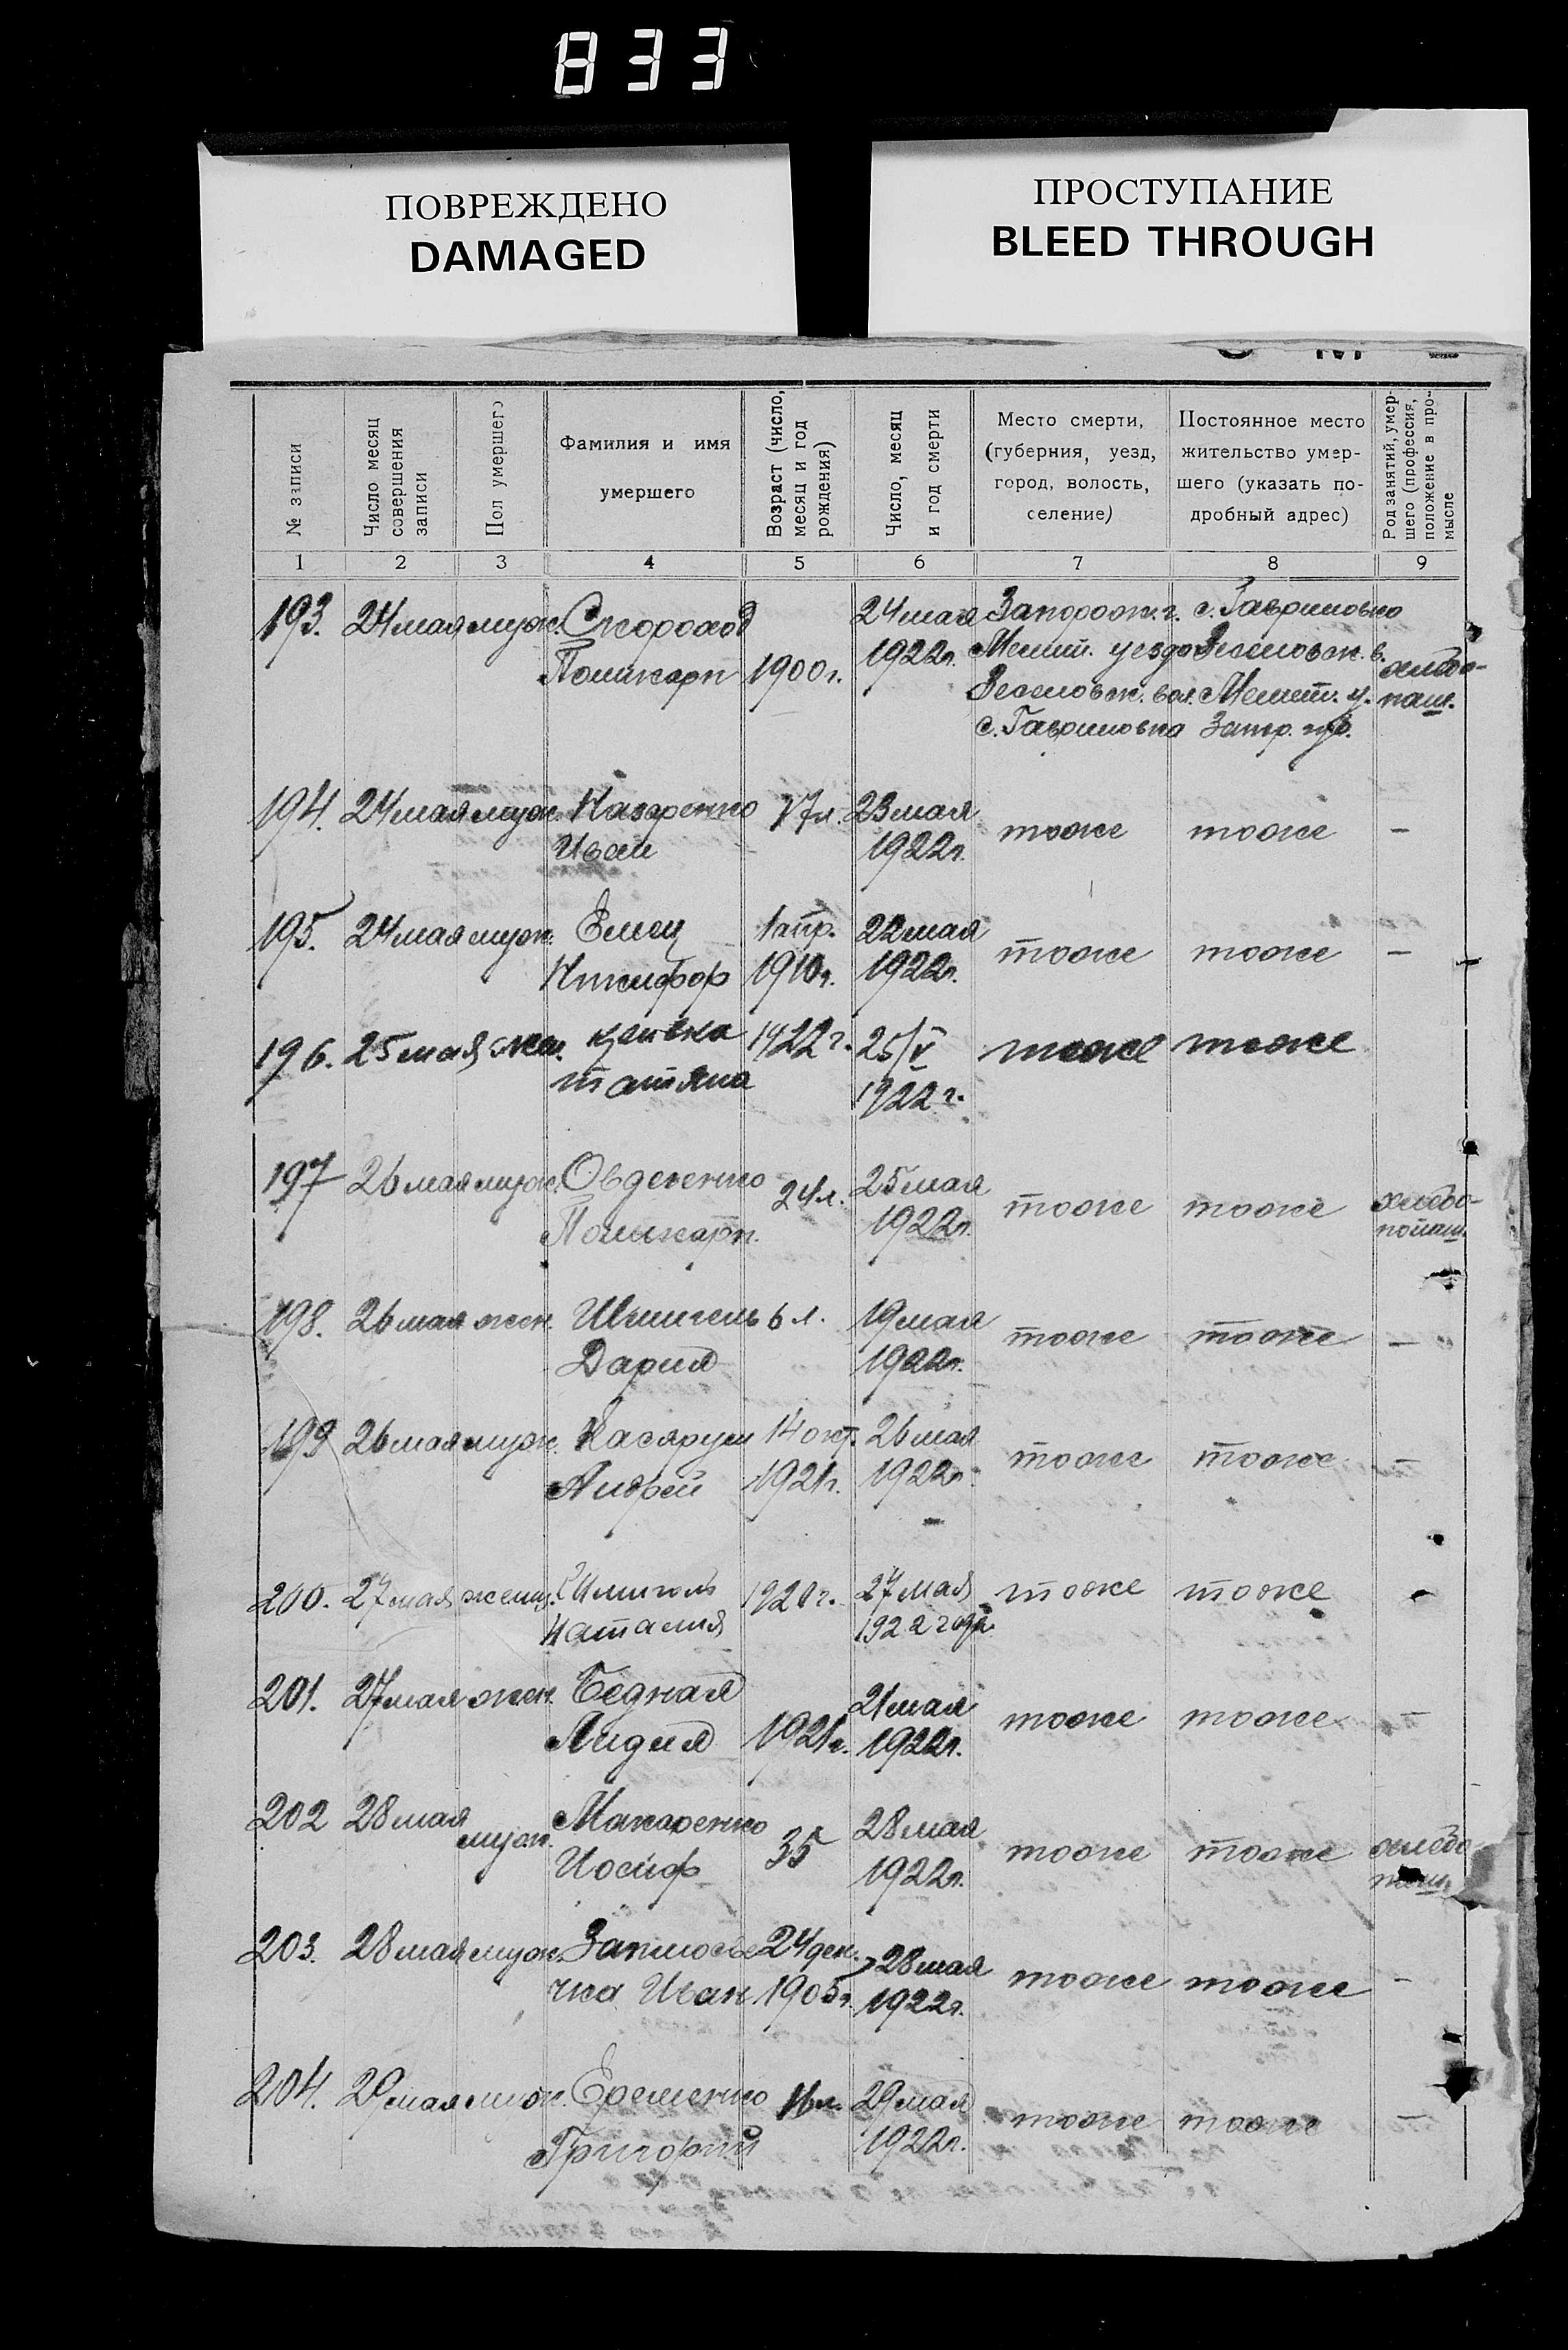 833
ПОВРЕЖДЕНО
DAMAGED
ПРОСТУПАНИЕ
BLEED THROUGH
№ записи
Число месяц совершения записи
Пол умершего
Фамилия и имя умершего
Возраст (число, месяц и год рождения)
Число, месяц и год смерти
Место смерти, (губерния, уезд, город, волость, селение)
Постоянное место жительство умершего (указать подробный адрес)
Род занятий, умершего (профессия, положение в промысле
1 2 3 4 5 6 7 8 9
193. 24 мая муж. Скороход 24 мая Запорож. г. с. Гавриловка
Поликарп 1900 г. 1922 г. Мелит. уезда Веселовск. в. хлебо-
Веселовск. вол. Мелит. у. паш.
с. Гавриловка Запор. губ.
194. 24 мая муж. Назаренко 17 л. 23 мая тоже тоже –
Иван 1922 г.
195. 24 мая муж. Емец 1 апр. 22 мая тоже тоже –
Никифор 1910 г. 1922 г.
196. 25 мая жен. 1922 г. 25/V тоже тоже
Татяна 1922 г.
197 26 мая муж. Овдеенко 24 л. 25 мая тоже тоже хлебо-
Поликарп. 1922 г. попаш.
198. 26 мая жен. Шмигель 6 л. 19 мая тоже тоже –
Дария 1922 г.
199 26 мая муж. Касярум 14 окт. 26 мая тоже тоже –
Андрей 1921 г. 1922 г.
200. 27 мая женщ. Шмиголь 1921 г. 27 мая тоже тоже -
Наталия 1922 года
201. 27 мая жен. Бедная 21 мая тоже тоже –
Лидия 1921 г. 1922 г.
202 28 мая муж. Макаренко 35 28 мая тоже тоже хлебо-
Иосиф 1922 г. паш.
203. 28 мая муж. 24 дек. 28 мая тоже тоже –
чка Иван 1905 г. 1922 г.
204. 29 мая муж. Еременко 16 л. 29 мая тоже тоже –
Григорий 1922 г.